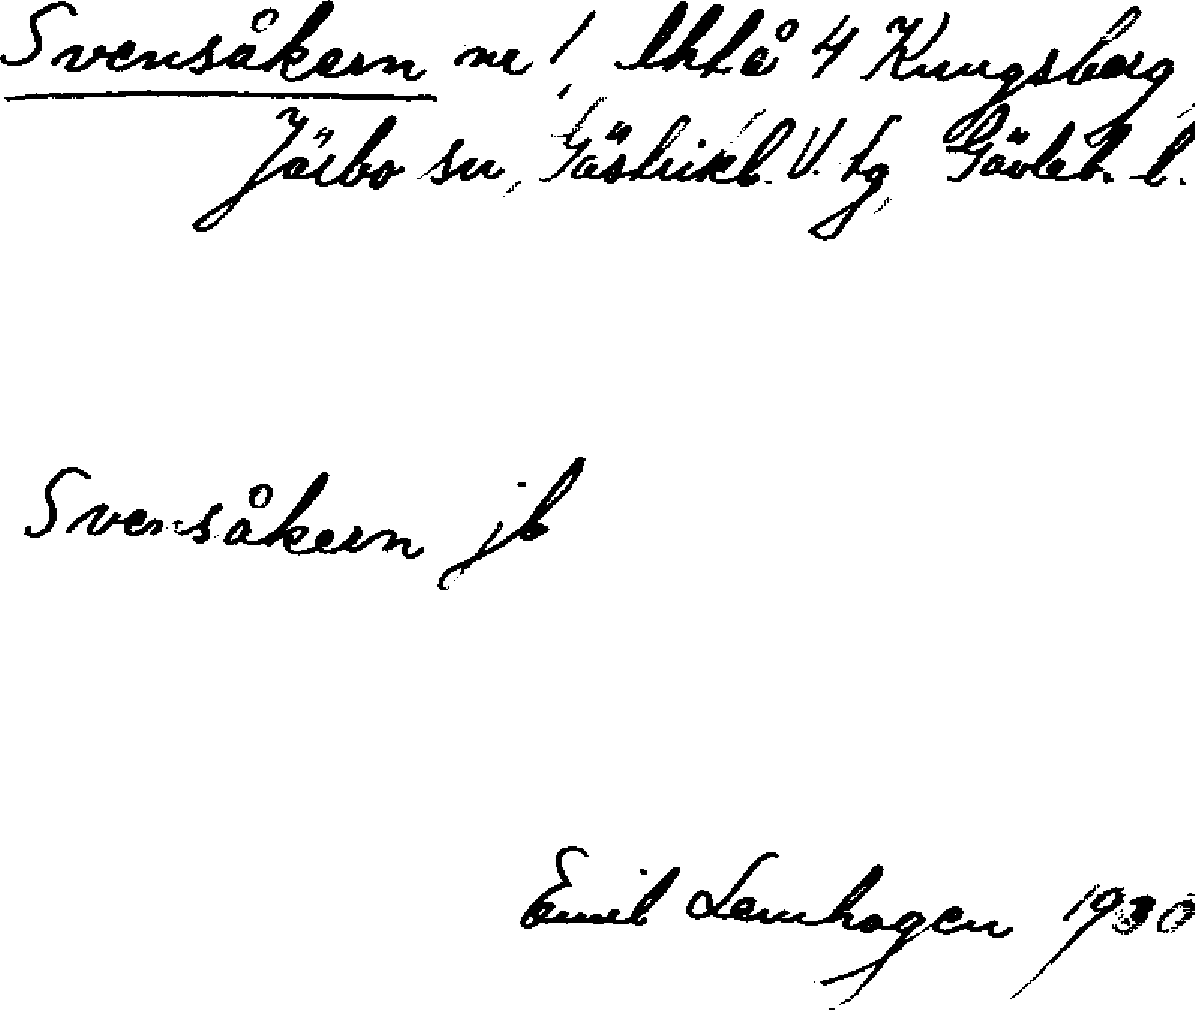 Svensåkern nr 1, lht å 4 Kungsberg,
Järbo sn, Gästrikl. V. tg, Gävleb. l.
Svensåkern jb
Emil Lernhagen 1930